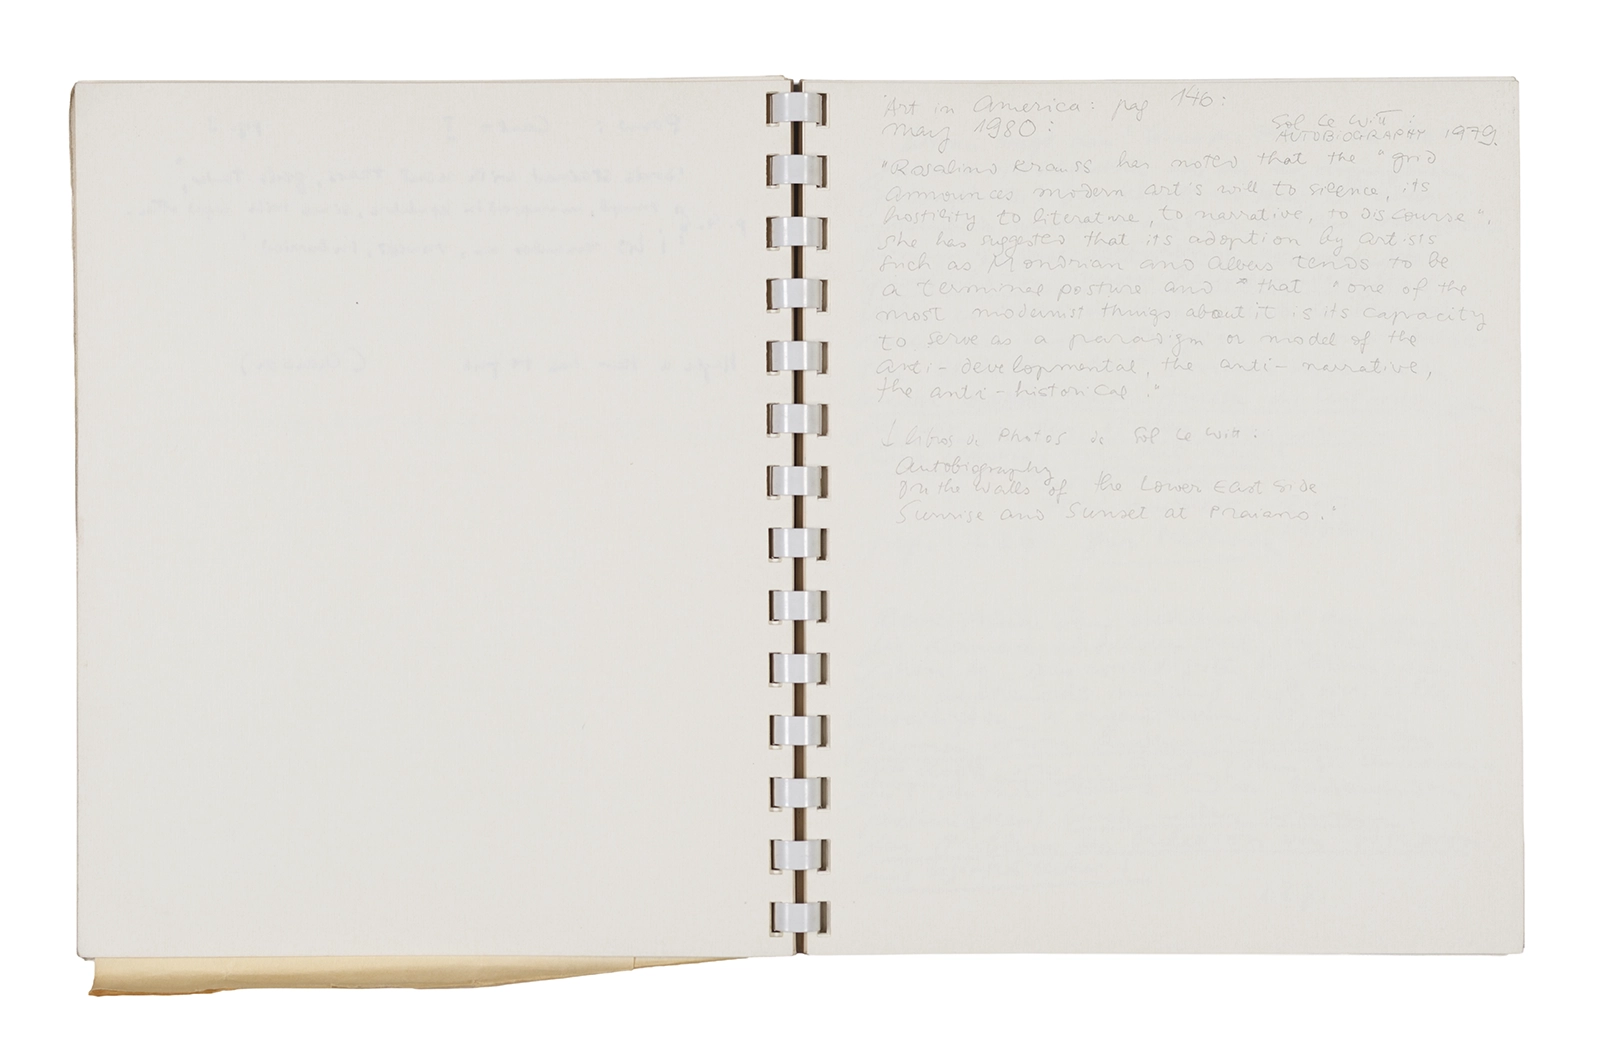 Art in America: pag 146:
may 1980:
Sol Le Witt:
AUTOBIOGRAPHY 1979.
"Rosalind Krauss has noted that the "grid
announces modern art's will to silence, its
hostility to literature, to narrative, to discourse",
she has suggested that its adoption by artists
such as Mondrian and Albers tends to be
a terminal posture and that "one of the
most modernist things about it is its capacity
to serve as a paradigm or model of the
anti-developmental, the anti-narrative,
the anti-historical."
↓ libros de Photos de Sol Le Witt:
Autobiography
On the Walls of the Lower East Side
Sunrise and Sunset at Praiano."